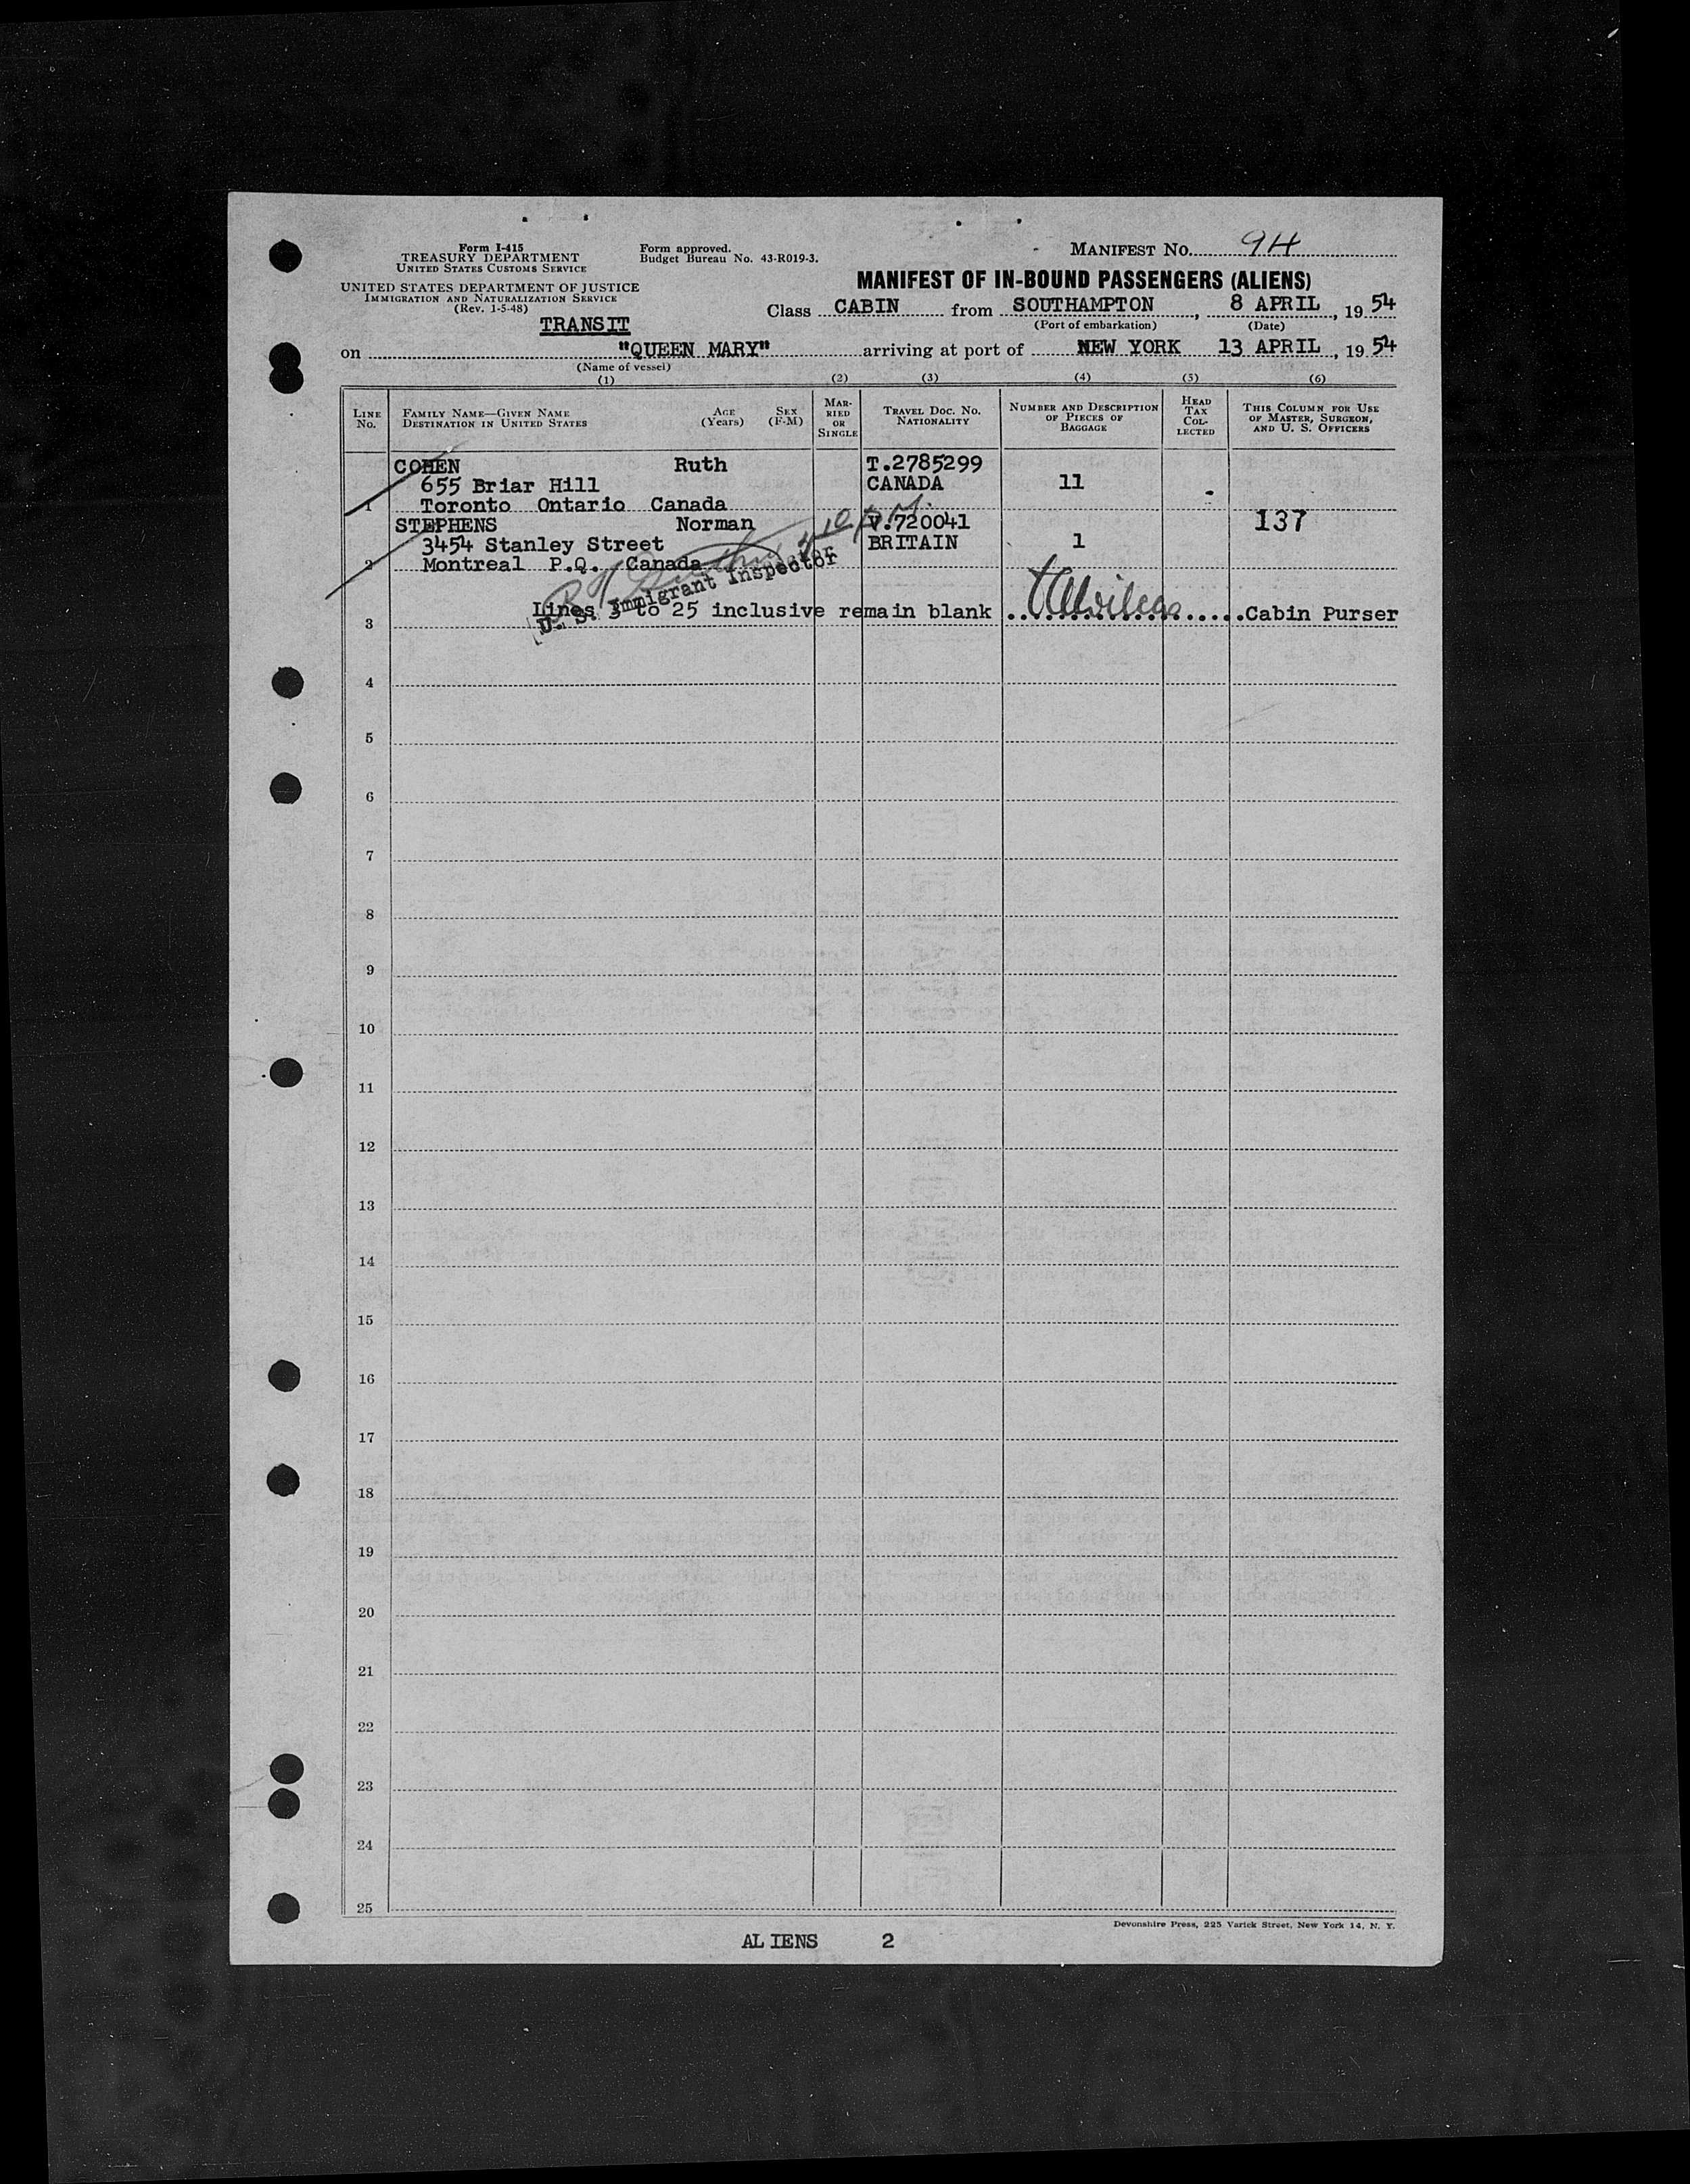 Form I-415
TREASURY DEPARTMENT
UNITED STATES CUSTOMS SERVICE
UNITED STATES DEPARTMENT OF JUSTICE
IMMIGRATION AND NATURALIZATION SERVICE
(Rev. 1-5-48)
Form approved.
Budget Bureau No. 43-R019-3.
MANIFEST No. 94
MANIFEST OF IN-BOUND PASSENGERS (ALIENS)
Class CABIN from SOUTHAMPTON, 8 APRIL, 1954
(Port of embarkation) (Date)
TRANSIT
on "QUEEN MARY" arriving at port of NEW YORK 13 APRIL, 1954
(Name of vessel)
(1) (2) (3) (4) (5) (6)
LINE No.
FAMILY NAME—GIVEN NAME
DESTINATION IN UNITED STATES
AGE (Years)
SEX (F-M)
MARRIED OR SINGLE
TRAVEL DOC. NO. NATIONALITY
NUMBER AND DESCRIPTION OF PIECES OF BAGGAGE
HEAD TAX COLLECTED
THIS COLUMN FOR USE OF MASTER, SURGEON, AND U. S. OFFICERS
COHEN Ruth T.2785299
655 Briar Hill CANADA 11
1 Toronto Ontario Canada
STEPHENS Norman V.720041 137
3454 Stanley Street BRITAIN 1
2 Montreal P.Q. Canada
U. S. Immigrant Inspector
Lines 3 to 25 inclusive remain blank ..................Cabin Purser
3
4
5
6
7
8
9
10
11
12
13
14
15
16
17
18
19
20
21
22
23
24
25
Devonshire Press, 225 Varick Street, New York 14, N. Y.
ALIENS 2